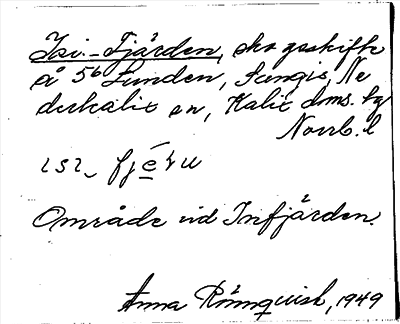 Isi-Fjärden, skogsskifte
å 5⁶ Lunden, Sangis, Ne
derkalix sn, Kalix dms. tg
Norrb. l
ısı_ fję́ṛu
Område vid Infjärden.
Anna Rönnquist, 1949